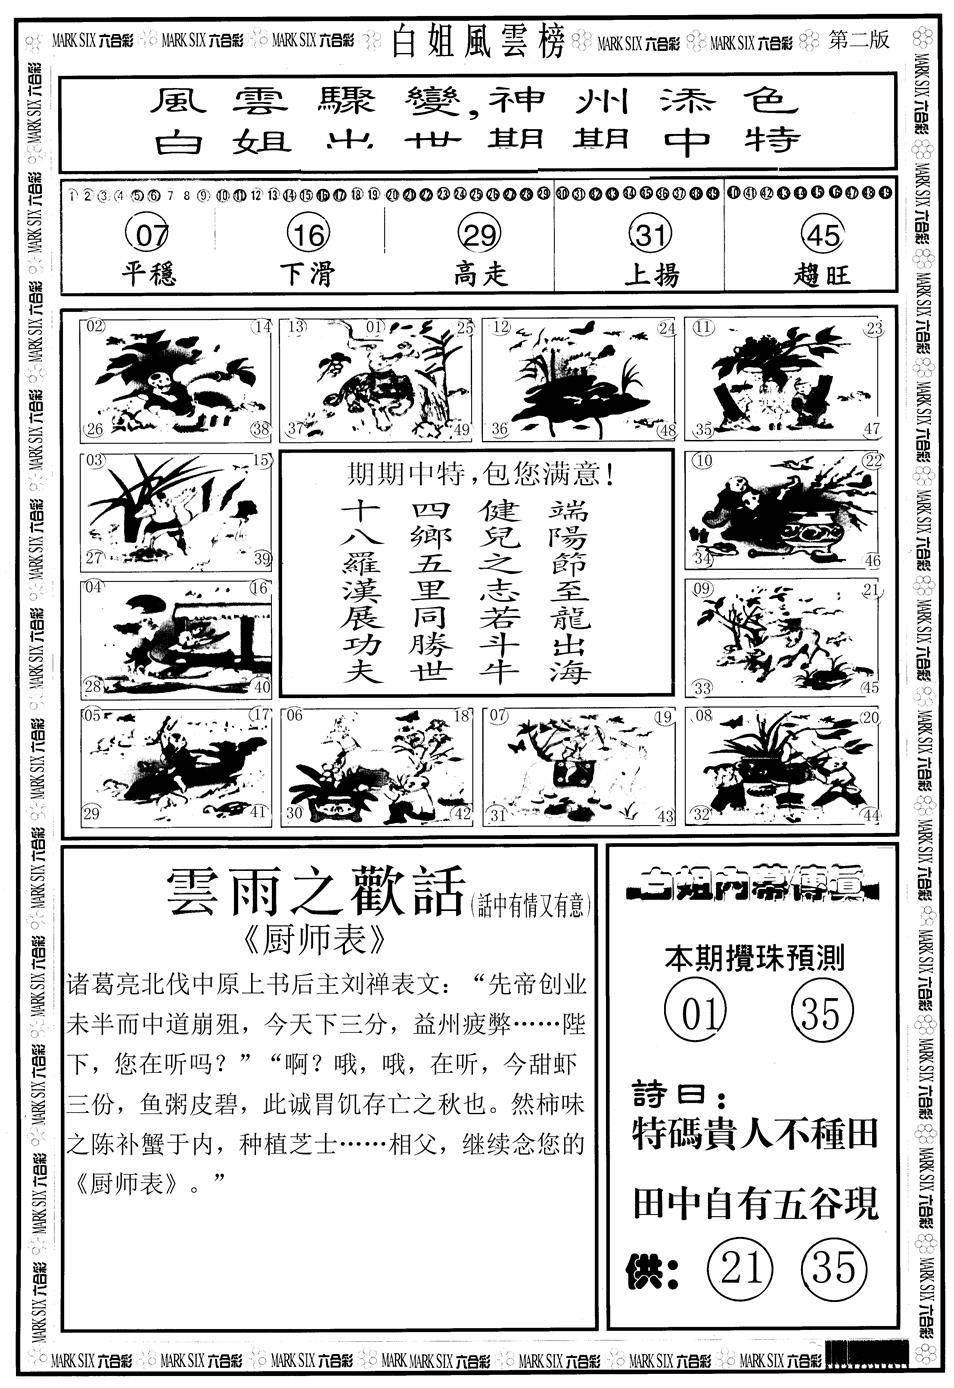 MARK SIX 六合彩 MARK SIX 六合彩 MARK SIX 六合彩 白姐風雲榜 MARK SIX 六合彩 MARK SIX 六合彩 第二版
風雲驟變,神州添色
白姐出世期期中特
1 2 3 4 5 6 7 8 9 10 11 12 13 14 15 16 17 18 19 20 21 22 23 24 25 26 27 28 29 30 31 32 33 34 35 36 37 38 39 40 41 42 43 44 45 46 47 48 49
07 16 29 31 45
平穩 下滑 高走 上揚 趨旺
02 14 13 01 25 12 24 11 23
26 38 37 49 36 48 35 47
03 15 10 22
27 39 34 46
04 16 09 21
28 40 33 45
05 17 06 18 07 19 08 20
29 41 30 42 31 43 32 44
期期中特,包您满意!
端陽節至龍出海
健兒之志若斗牛
四鄉五里同勝世
十八羅漢展功夫
雲雨之歡話(話中有情又有意)
《厨师表》
诸葛亮北伐中原上书后主刘禅表文：“先帝创业
未半而中道崩殂，今天下三分，益州疲弊……陛
下，您在听吗？”“啊？哦，哦，在听，今甜虾
三份，鱼粥皮碧，此诚胃饥存亡之秋也。然柿味
之陈补蟹于内，种植芝士……相父，继续念您的
《厨师表》。”
白姐内幕傳真
本期攪珠預測
01 35
詩曰：
特碼貴人不種田
田中自有五谷現
供：21 35
MARK SIX 六合彩 MARK SIX 六合彩 MARK SIX 六合彩 MARK MARK SIX 六合彩 MARK SIX 六合彩 MARK SIX 六合彩 MARK SIX 六合彩